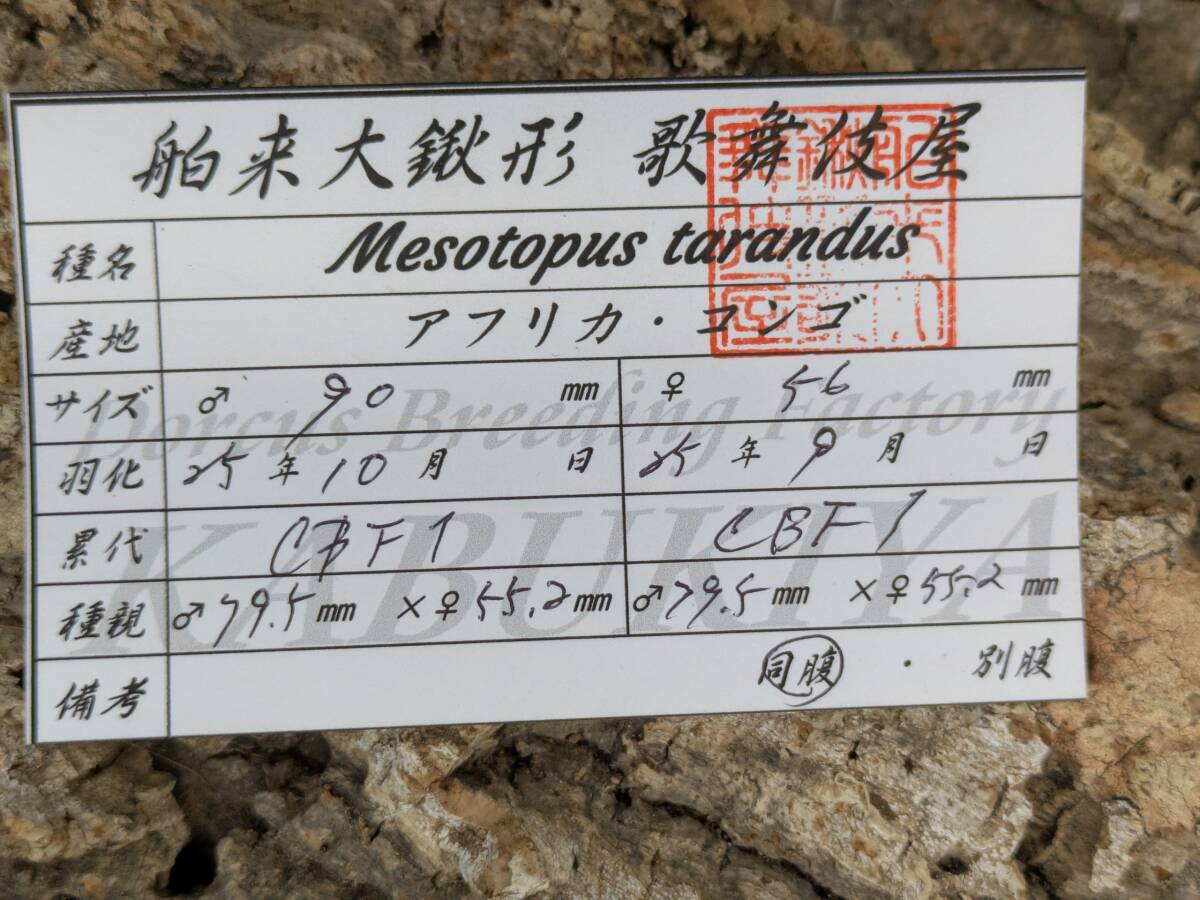 舶来大鍬形 歌舞伎屋
種名 Mesotopus tarandus
産地 アフリカ・コンゴ
サイズ ♂ 90 mm ♀ 56 mm
羽化 25年10月 日 25年9月 日
累代 CBF1 CBF1
種親 ♂79.5mm ×♀55.2mm ♂79.5mm ×♀55.2mm
備考 同腹 ・ 別腹
Dorcus Breeding Factory
KABUKIYA